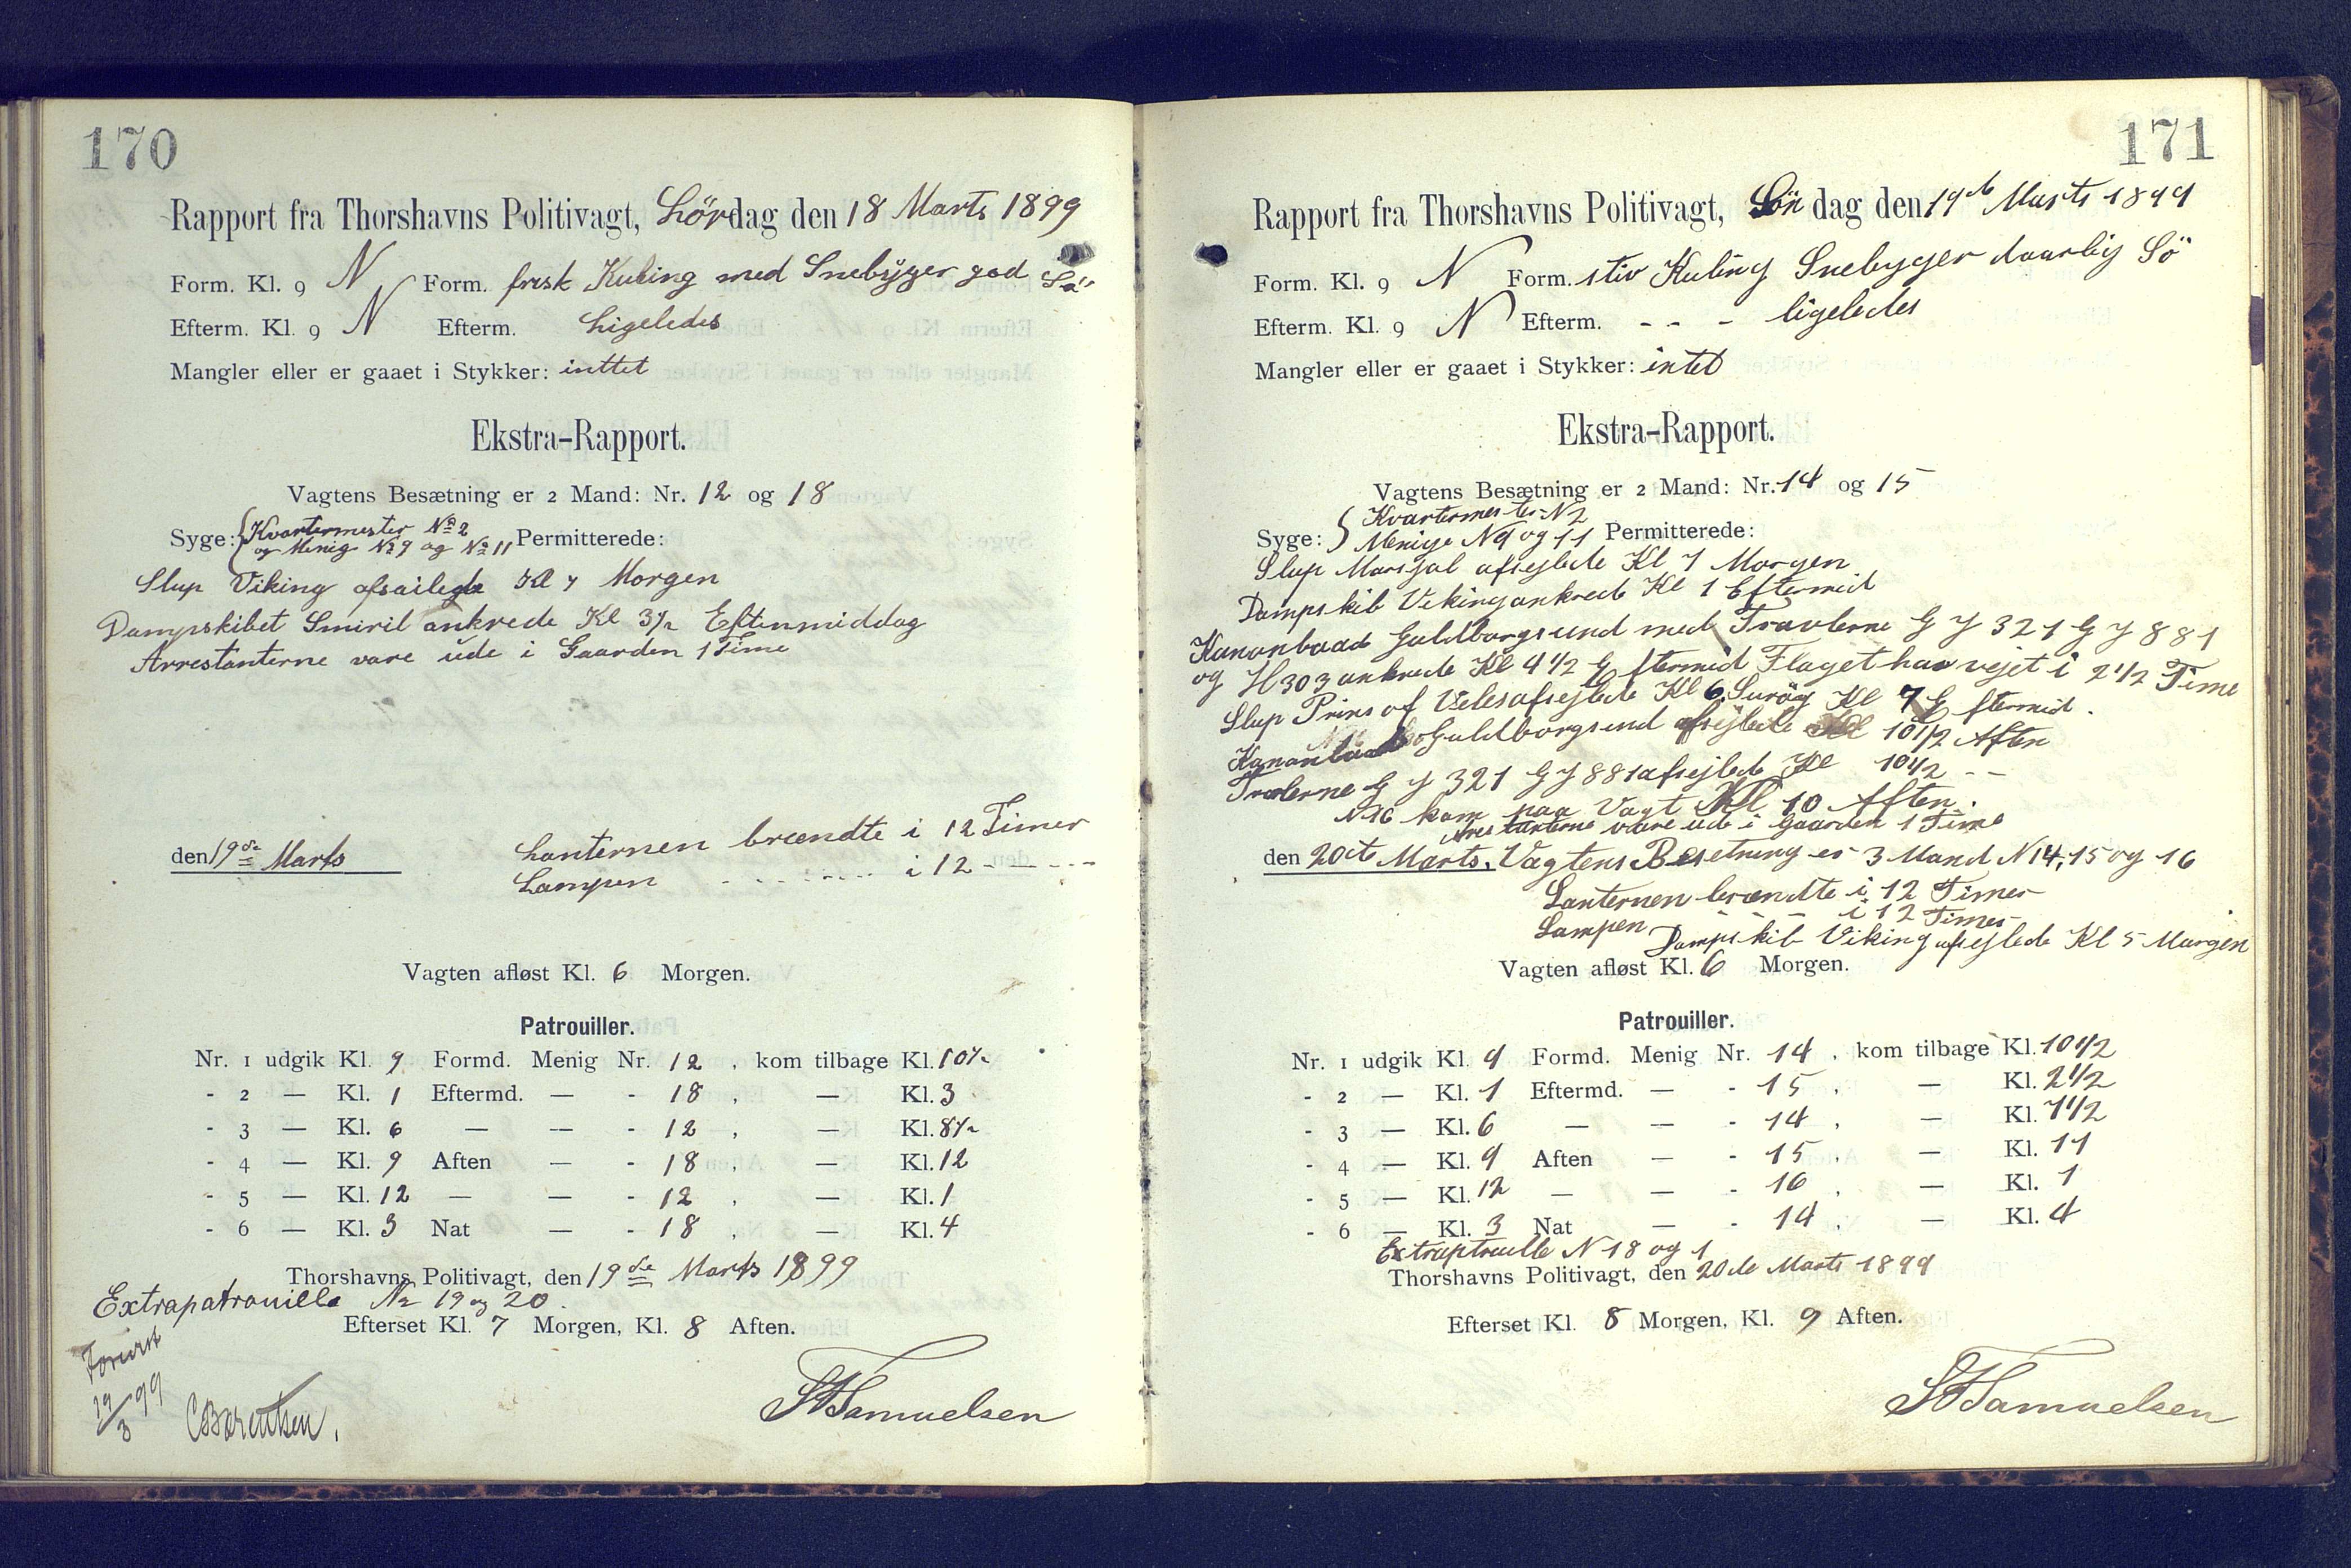 170
Rapport fra Thorshavns Politivagt, Lördag den 18 Marts 1899
Form. Kl. 9 N Form. frisk Kuling med Snebyger god Sö
Efterm. Kl. 9 N Efterm. Ligeledes
Mangler eller er gaaet i Stykker: inttet
Ekstra-Rapport.
Vagtens Besætning er 2 Mand: Nr. 12 og 18
Syge: Kvartermester No 2 og Menig No 9 og No 11 Permitterede:
Slup Viking afsailede Kl 7 Morgen
Dampskibet Smiril ankrede Kl 3½ Eftenmiddag
Arrestanterne vare ude i Gaarden 1 Time
den 19de Marts Lanternen brændte i 12 Timer
Lampen - - - - - - i 12 - - - -
Vagten afløst Kl. 6 Morgen.
Patrouiller.
Nr. 1 udgik Kl. 9 Formd. Menig Nr. 12, kom tilbage Kl. 10½
- 2 — Kl. 1 Eftermd. — - 18, — Kl. 3
- 3 — Kl. 6 — — - 12, — Kl. 8½
- 4 — Kl. 9 Aften — - 18, — Kl. 12
- 5 — Kl. 12 — — - 12, — Kl. 1
- 6 — Kl. 3 Nat — - 18, — Kl. 4
Thorshavns Politivagt, den 19de Marts 1899
Extrapatrouille No 19 og 20.
Efterset Kl. 7 Morgen, Kl. 8 Aften.
Forevist
19/3 99
CBærentsen.
Samuelsen
171
Rapport fra Thorshavns Politivagt, Söndag den 19de Marts 1899
Form. Kl. 9 N Form. stiv Kuling Snebyger daarlig Sö
Efterm. Kl. 9 N Efterm. - - - ligeledes
Mangler eller er gaaet i Stykker: intet
Ekstra-Rapport.
Vagtens Besætning er 2 Mand: Nr. 14 og 15
Syge: Kvartermester N 2 Menige N 9 og 11 Permitterede:
Slup Marsjal afsejlede Kl 7 Morgen
Dampskib Viking ankrede Kl 1 Eftermid
Kanonbaad Guldborgsund med Travlerne G Y 321 G Y 881
og H 303 ankrede Kl 4½ Eftermid Flaget har vejet i 2½ Time
Slup Prins of Veles afsejlede Kl 6 Suröy Kl 7 Eftermid.
Kanonbaad Guldborgsund afsejlede Kl 10½ Aften
Tralerne G Y 321 G Y 881 afsejlede Kl 10½ - -
N 16 kom paa Vagt Kl 10 Aften.
Arestanterne vare ude i Gaarden 1 Time
den 20de Marts. Vagtens Besetning er 3 Mand N 14, 15 og 16
Lanternen brændte i 12 Timer
Lampen - - - i 12 Timer
Dampskib Viking afsejlede Kl 5 Morgen
Vagten afløst Kl. 6 Morgen.
Patrouiller.
Nr. 1 udgik Kl. 9 Formd. Menig Nr. 14, kom tilbage Kl. 10½
- 2 — Kl. 1 Eftermd. — - 15, — Kl. 2½
- 3 — Kl. 6 — — - 14, — Kl. 7½
- 4 — Kl. 9 Aften — - 15, — Kl. 11
- 5 — Kl. 12 — — - 16, — Kl. 1
- 6 — Kl. 3 Nat — - 14, — Kl. 4
Extraptruelle N 18 og 1
Thorshavns Politivagt, den 20de Marts 1899
Efterset Kl. 8 Morgen, Kl. 9 Aften.
Samuelsen